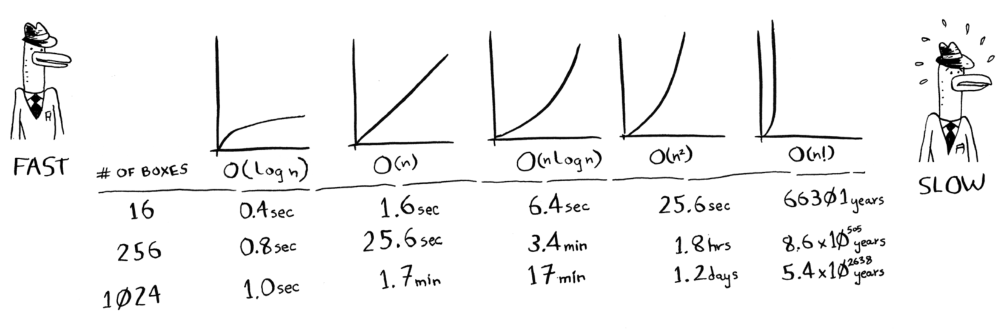 FAST
# OF BOXES O(log n) O(n) O(n log n) O(n²) O(n!)
16 0.4sec 1.6sec 6.4sec 25.6sec 66301years
256 0.8sec 25.6sec 3.4min 1.8hrs 8.6x10⁵⁰⁵years
1024 1.0sec 1.7min 17min 1.2days 5.4x10²⁶³⁸years
SLOW